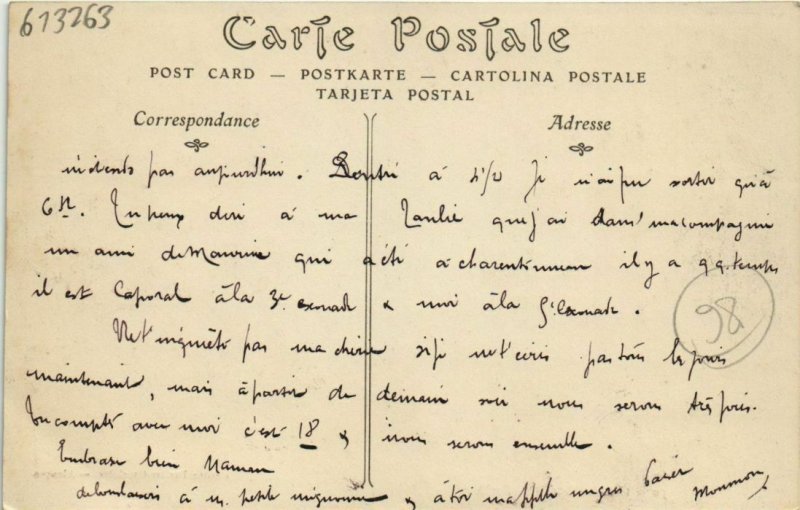 613263
Carte Postale
POST CARD — POSTKARTE — CARTOLINA POSTALE
TARJETA POSTAL
Correspondance
Adresse
pas aujourd'hui. à 4 1/2 Je n'ai pu sortir qu'à
6 h. Tu peux dire à ma que j'ai dans ma compagnie
un ami de Maurice qui a été à charentonneau il y a qq. temps
il est Caporal à la 3e escouade & moi à la 5e escouade.
98
Ne t'inquiète pas ma chérie si je ne t'écris pas tous les jours
maintenant, mais à partir de demain soir nous serons très pris.
Tu comptes avec moi c'est 18 & nous serons ensemble.
Embrasse bien Maman
à m. petite mignonne & à toi ma gros baiser